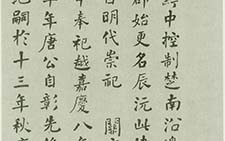 中控制楚南沿
郡始更名辰沅此
明代崇祀 關
奉祀越嘉慶八
年唐公自彰先
嗣於十三年秋